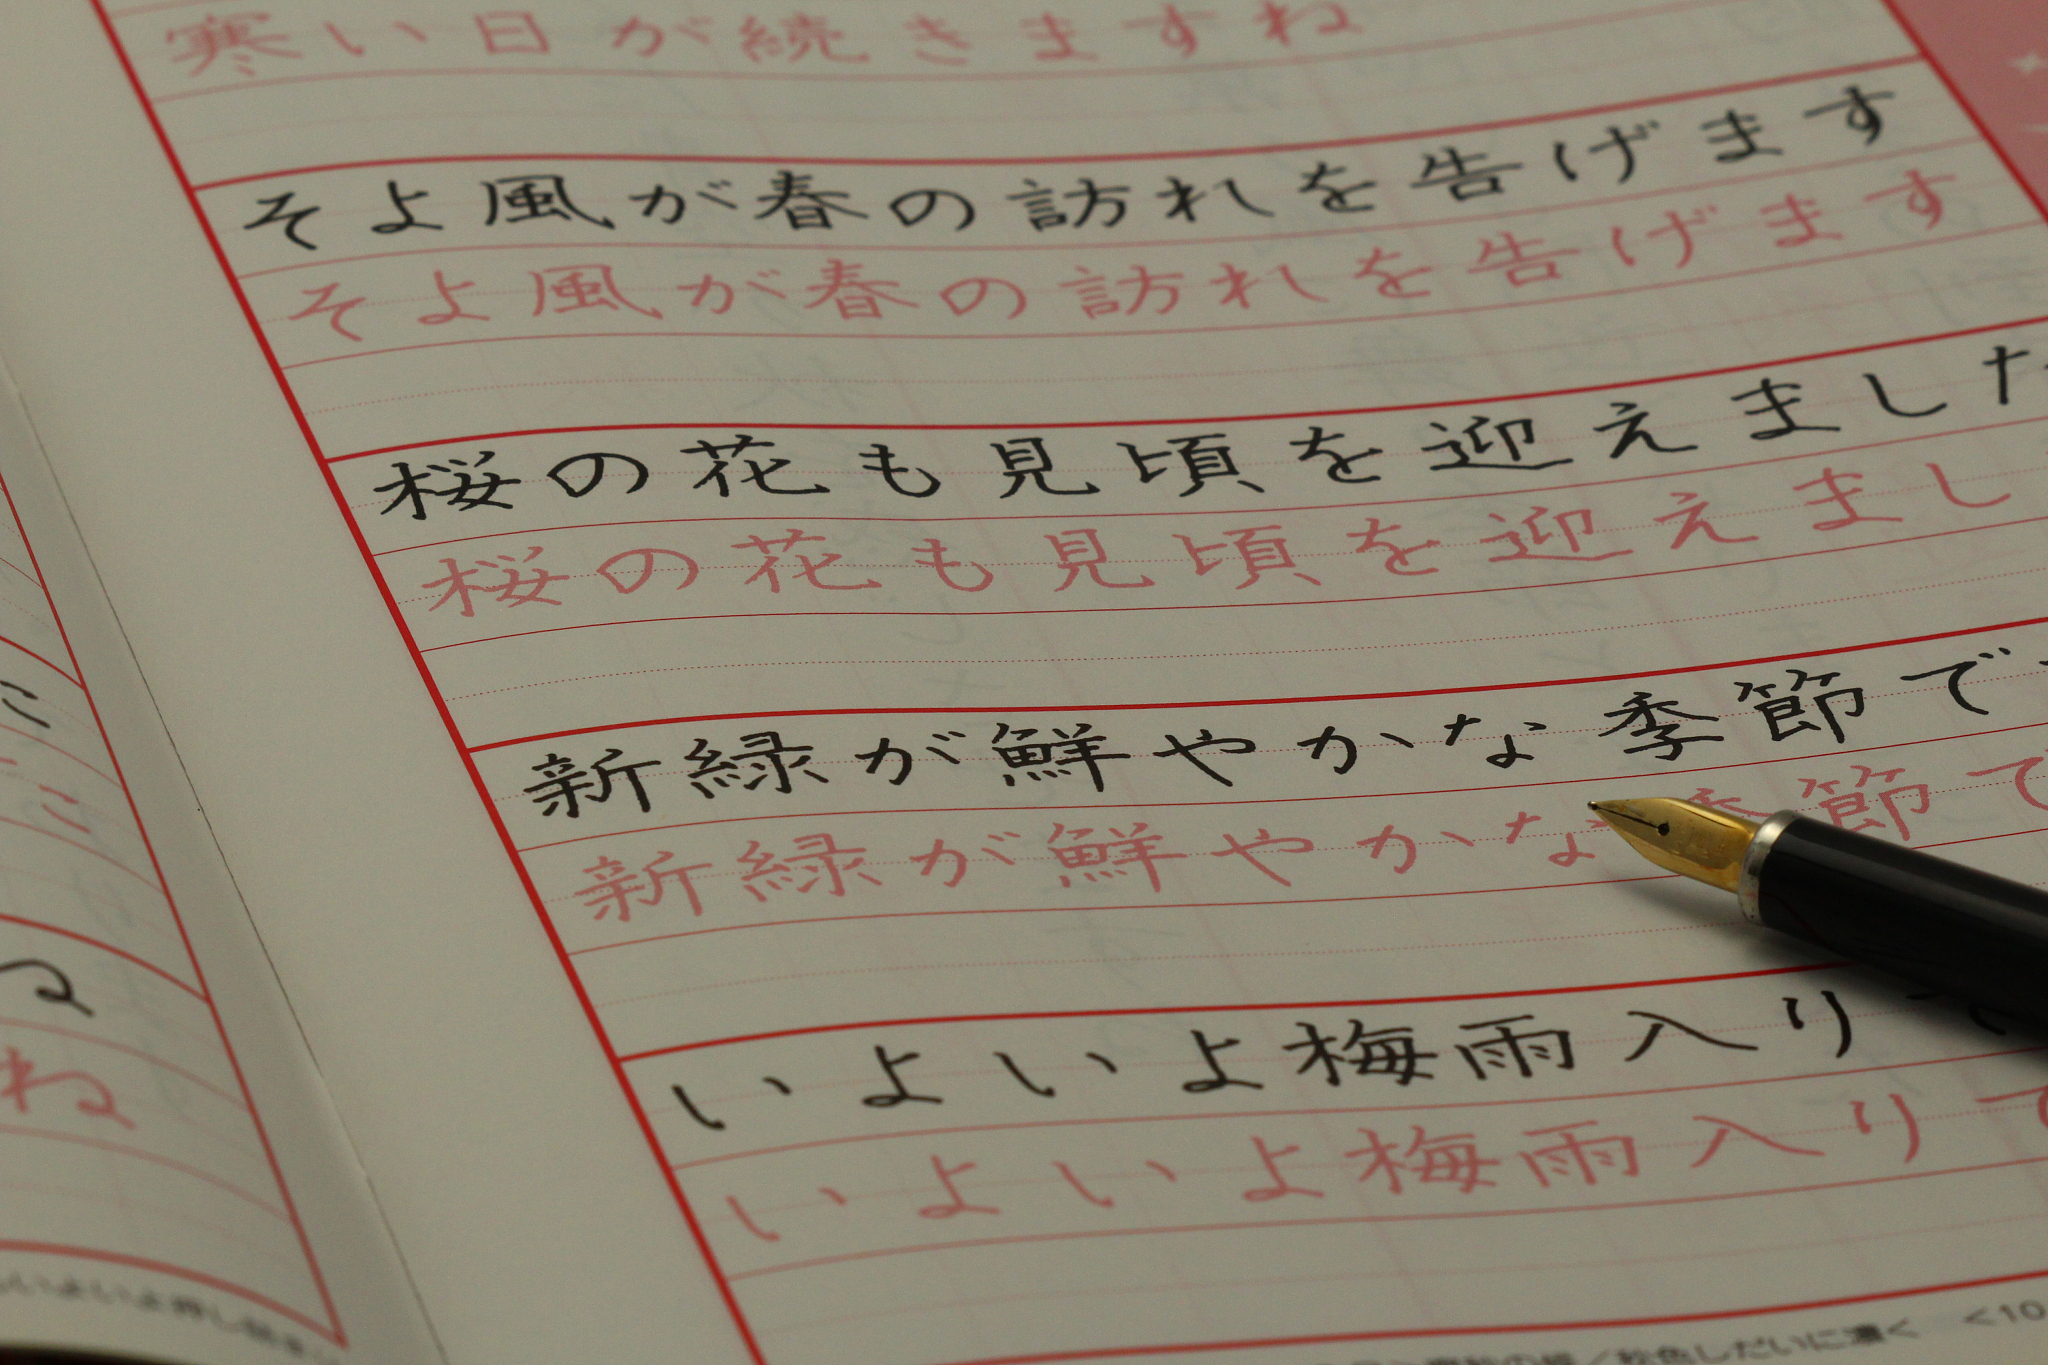 寒い日が続きますね
そよ風が春の訪れを告げます
そよ風が春の訪れを告げます
桜の花も見頃を迎えました
桜の花も見頃を迎えまし
新緑が鮮やかな季節で
新緑が鮮やかな季節で
いよいよ梅雨入り
いよいよ梅雨入りで
に
に
ね
ね
しだいに濃く <10